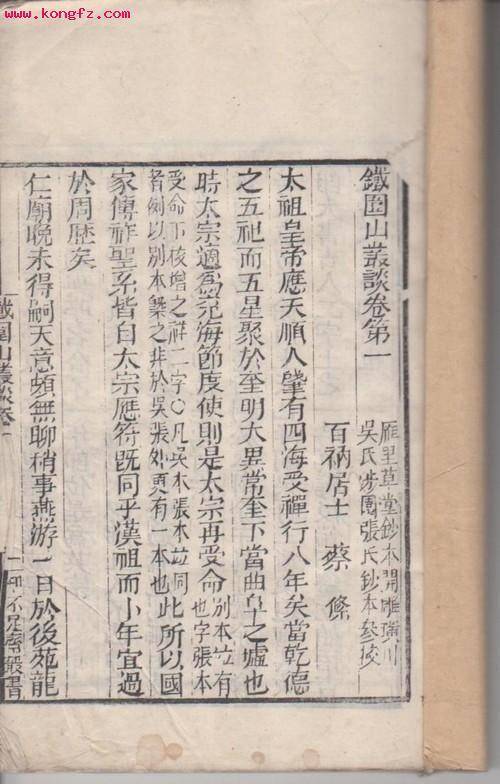 www.kongfz.com
鐵圍山叢談卷第一
雁里草堂鈔本開雕璜川
吳氏涉園張氏鈔本參挍
百衲居士 蔡絛
太祖皇帝應天順人肇有四海受禪行八年矣當乾德
之五祀而五星聚於奎明大異常奎下當曲阜之墟也
時太宗適為兗海節度使則是太宗再受命
別本竝有
也字張本
受命下核增之祥二字〇凡吳本張本竝同
者例以別本槩之非於吳張外更有一本也
此所以國
家傳祚聖系皆自太宗應符既同乎漢祖而卜年宜過
於周歷矣
仁廟晚未得嗣天意頗無聊稍事燕游一日於後苑龍
鐵圍山叢談卷一
一
不足齋叢書